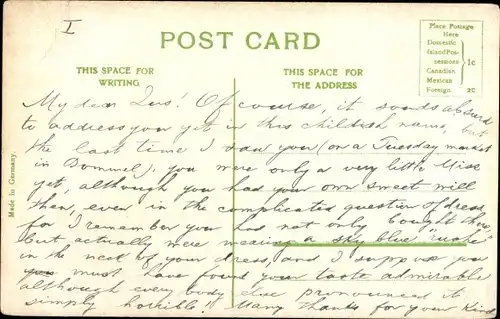 I
POST CARD
THIS SPACE FOR
WRITING
THIS SPACE FOR
THE ADDRESS
Place Postage
Here
Domestic
Island Pos-
sessions
Canadian
Mexican
1c
Foreign 2c
Made in Germany.
My dear ! Of course, it sounds absurd
to address you yet in this childish name, but
the last time I saw you (on a Tuesday market
in Bommel), you were only a very little Miss
yet, although you had your own sweet will
then, even in the complicated question of dress,
for I remember you has not only bought there
but actually were wearing a sky blue
in the neck of your dress, and I suppose you
must have found your taste admirable
although every body else pronounced it
simply horrible! Many thanks for your kind